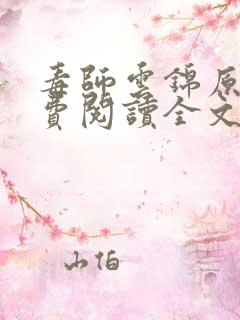 毒師雲錦原
費閱讀全文
山伯